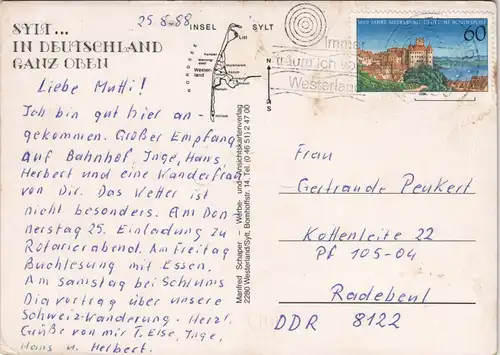 SYLT...
IN DEUTSCHLAND
GANZ OBEN
25.8-88
INSEL SYLT
NORDSEE
List
Kampen
Westerland
N
S
Immer
träum ich vo
Westerlan
1000 JAHRE MEERSBURG DEUTSCHE BUNDESPOST
60
Liebe Mutti!
Ich bin gut hier an-
gekommen. Großer Empfang
auf Bahnhof, Inge, Hans,
Herbert und eine Wanderfrau
von Dir. Das Wetter ist
nicht besonders. Am Don
nerstag 25. Einladung zu
Rotarierabend. Am Freitag
Buchlesung mit Essen.
Am Samstag bei Schlums
Dia vortrag über unsere
Schweiz-Wanderung. Herzl.
Grüße von mir T. Else, Inge,
Hans u. Herbert.
Manfred Schaper – Werbe- und Ansichtskartenverlag
2280 Westerland/Sylt, Bomhoffstr. 14, Tel. (0 46 51) 2 47 00
Frau
Gertraude Peukert
Kottenleite 22
PF 105-04
Radebeul
DDR 8122